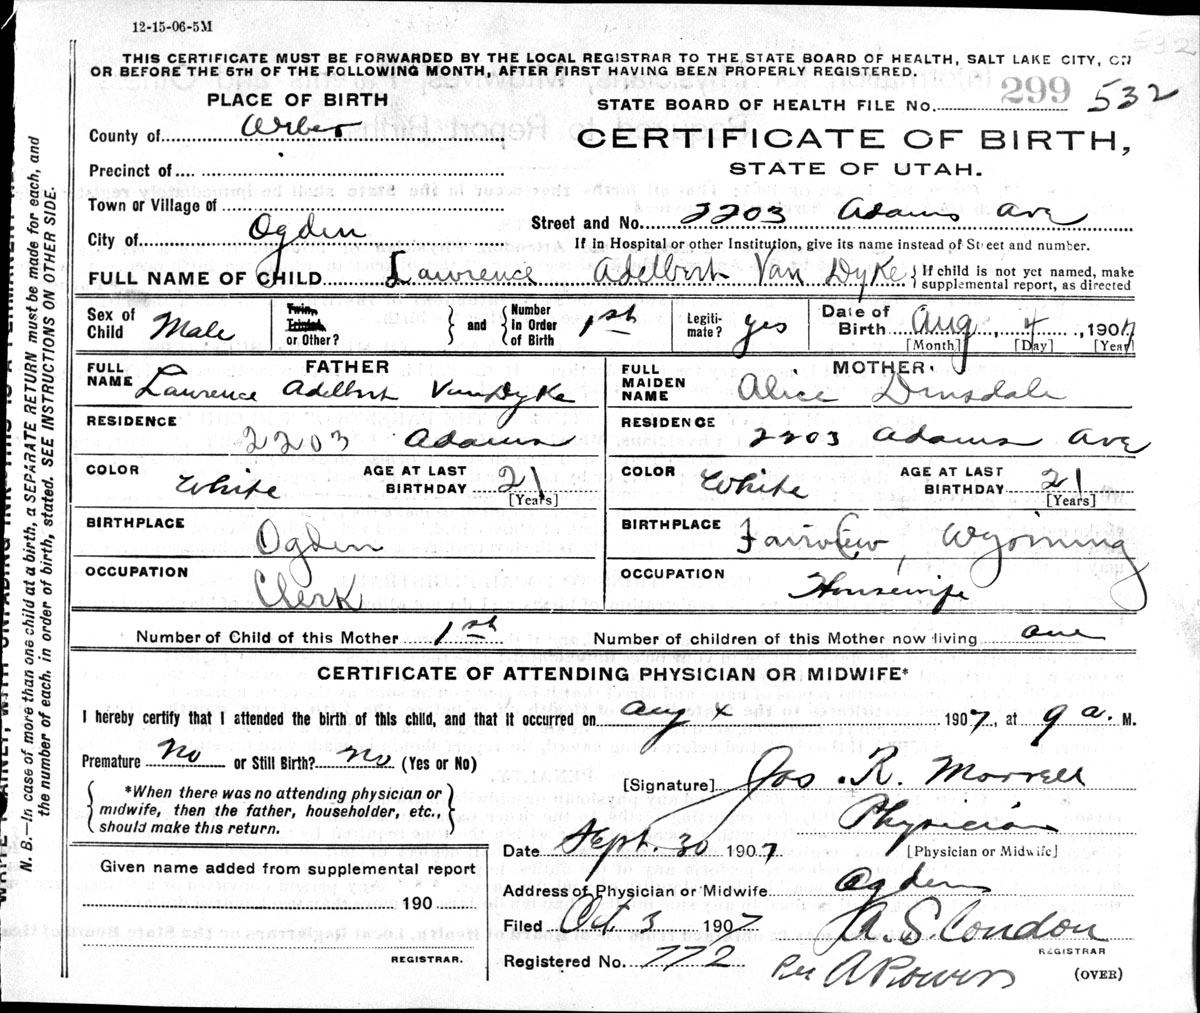 12-15-06-5M
THIS CERTIFICATE MUST BE FORWARDED BY THE LOCAL REGISTRAR TO THE STATE BOARD OF HEALTH, SALT LAKE CITY, ON
OR BEFORE THE 5TH OF THE FOLLOWING MONTH, AFTER FIRST HAVING BEEN PROPERLY REGISTERED.
PLACE OF BIRTH
STATE BOARD OF HEALTH FILE No. 299 532
County of Weber
CERTIFICATE OF BIRTH,
Precinct of
STATE OF UTAH.
Town or Village of
Street and No. 2203 Adams Ave
City of Ogden
If in Hospital or other Institution, give its name instead of Street and number.
FULL NAME OF CHILD Lawrence Adelbert Van Dyke { If child is not yet named, make
supplemental report, as directed
Sex of Child Male
Twin, Triplet, or Other?
and Number in Order of Birth 1st
Legiti-mate? yes
Date of Birth Aug, 4, 1907
[Month] [Day] [Year]
FATHER
FULL NAME Lawrence Adelbert VanDyke
MOTHER
FULL MAIDEN NAME Alice Dinsdale
RESIDENCE 2203 Adams
RESIDENCE 2203 Adams Ave
COLOR White AGE AT LAST BIRTHDAY 21 [Years]
COLOR White AGE AT LAST BIRTHDAY 21 [Years]
BIRTHPLACE Ogden
BIRTHPLACE Fairview, Wyoming
OCCUPATION Clerk
OCCUPATION Housewife
Number of Child of this Mother 1st Number of children of this Mother now living one
CERTIFICATE OF ATTENDING PHYSICIAN OR MIDWIFE*
I hereby certify that I attended the birth of this child, and that it occurred on Aug 4 1907, at 9 a. M.
Premature No or Still Birth? No (Yes or No)
[Signature] Jas. R. Morrell
*When there was no attending physician or
midwife, then the father, householder, etc.,
should make this return.
Physician
[Physician or Midwife]
Date Sept. 30 1907
Given name added from supplemental report
190
REGISTRAR.
Address of Physician or Midwife Ogden
Filed Oct 3 1907 A. S. Condon
REGISTRAR
Registered No. 772 Per A Powers
(OVER)
N. B.—In case of more than one child at a birth, a SEPARATE RETURN must be made for each, and
the number of each, in order of birth, stated. SEE INSTRUCTIONS ON OTHER SIDE.